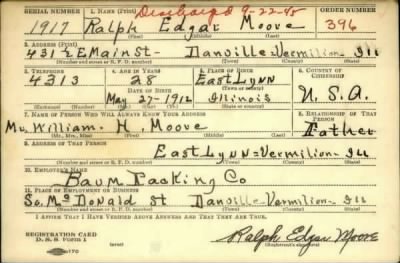 Discharged 9-22-45
SERIAL NUMBER 1. NAME (Print) ORDER NUMBER
1917 Ralph Edgar Moore 396
(First) (Middle) (Last)
2. ADDRESS (Print)
431½ E Main St- Danville-Vermilion-Ill
(Number and street or R. F. D. number) (Town) (County) (State)
3. TELEPHONE 4. AGE IN YEARS 5. PLACE OF BIRTH 6. COUNTRY OF CITIZENSHIP
4313 28 East Lynn
DATE OF BIRTH
May-27-1912 Illinois U.S.A.
(Exchange) (Number) (Mo.) (Day) (Yr.) (State or country)
7. NAME OF PERSON WHO WILL ALWAYS KNOW YOUR ADDRESS 8. RELATIONSHIP OF THAT PERSON
Mr. William- H. Moore Father
(Mr., Mrs., Miss) (First) (Middle) (Last)
9. ADDRESS OF THAT PERSON
East Lynn-Vermilion-Ill
(Number and street or R. F. D. number) (Town) (County) (State)
10. EMPLOYER'S NAME
Baum Packing Co
11. PLACE OF EMPLOYMENT OR BUSINESS
So. McDonald St Danville-Vermilion-Ill
(Number and street or R. F. D. number) (Town) (County) (State)
I AFFIRM THAT I HAVE VERIFIED ABOVE ANSWERS AND THAT THEY ARE TRUE.
REGISTRATION CARD
D. S. S. Form 1 Ralph Edgar Moore
(Registrant's signature)